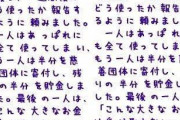 どう使ったか報告す
るように頼みました。
一人はあっぱれに
も全て使ってしまい、
一人は半分を慈
善団体に寄付し、残
りの半分を貯金
しました。最後の一人は、
「こんな大きなお金
どう使ったか報告す
るように頼みました。
一人はあっぱれに
も全て使ってしまい
一人は半分を慈
善団体に寄付し、残
りの半分を貯金し
ました。最後の一人
「こんな大きなお